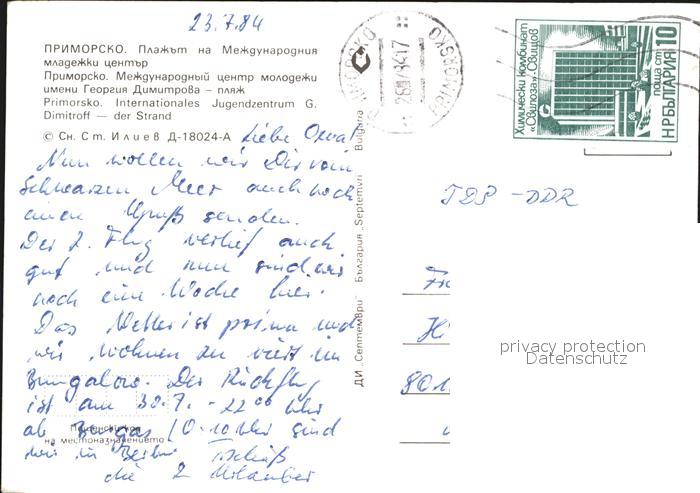 23.7.84
ПРИМОРСКО. Плажът на Международния
младежки център
Приморско. Международный центр молодежи
имени Георгия Димитрова — пляж
Primorsko. Internationales Jugendzentrum G.
Dimitroff — der Strand
© Сн. Ст. Илиев Д-18024-А
Liebe Oma!
Nun wollen wir Dir vom
Schwarzen Meer auch noch
einen Gruß senden.
Der 2. Flug verlief auch
gut und nun sind wir
noch eine Woche hier.
Das Wetter ist prima und
wir wohnen zu viert im
Bungalow. Der Rückflug
ist am 30.7. - 22 00 Uhr
ab Burgas, 0.10 Uhr sind
wir in Berlin. Tschüß
die 2 Urlauber
на местоназначението
ДИ „Септември" България „Septemvri" Bulgaria
ПРИМОРСКО
PRIMORSKO
Химически комбинат
«Свилоза»-Свищов
поща ст 10
НР БЪЛГАРИЯ
ГДР - DDR
Fr
Hi
801
privacy protection
Datenschutz